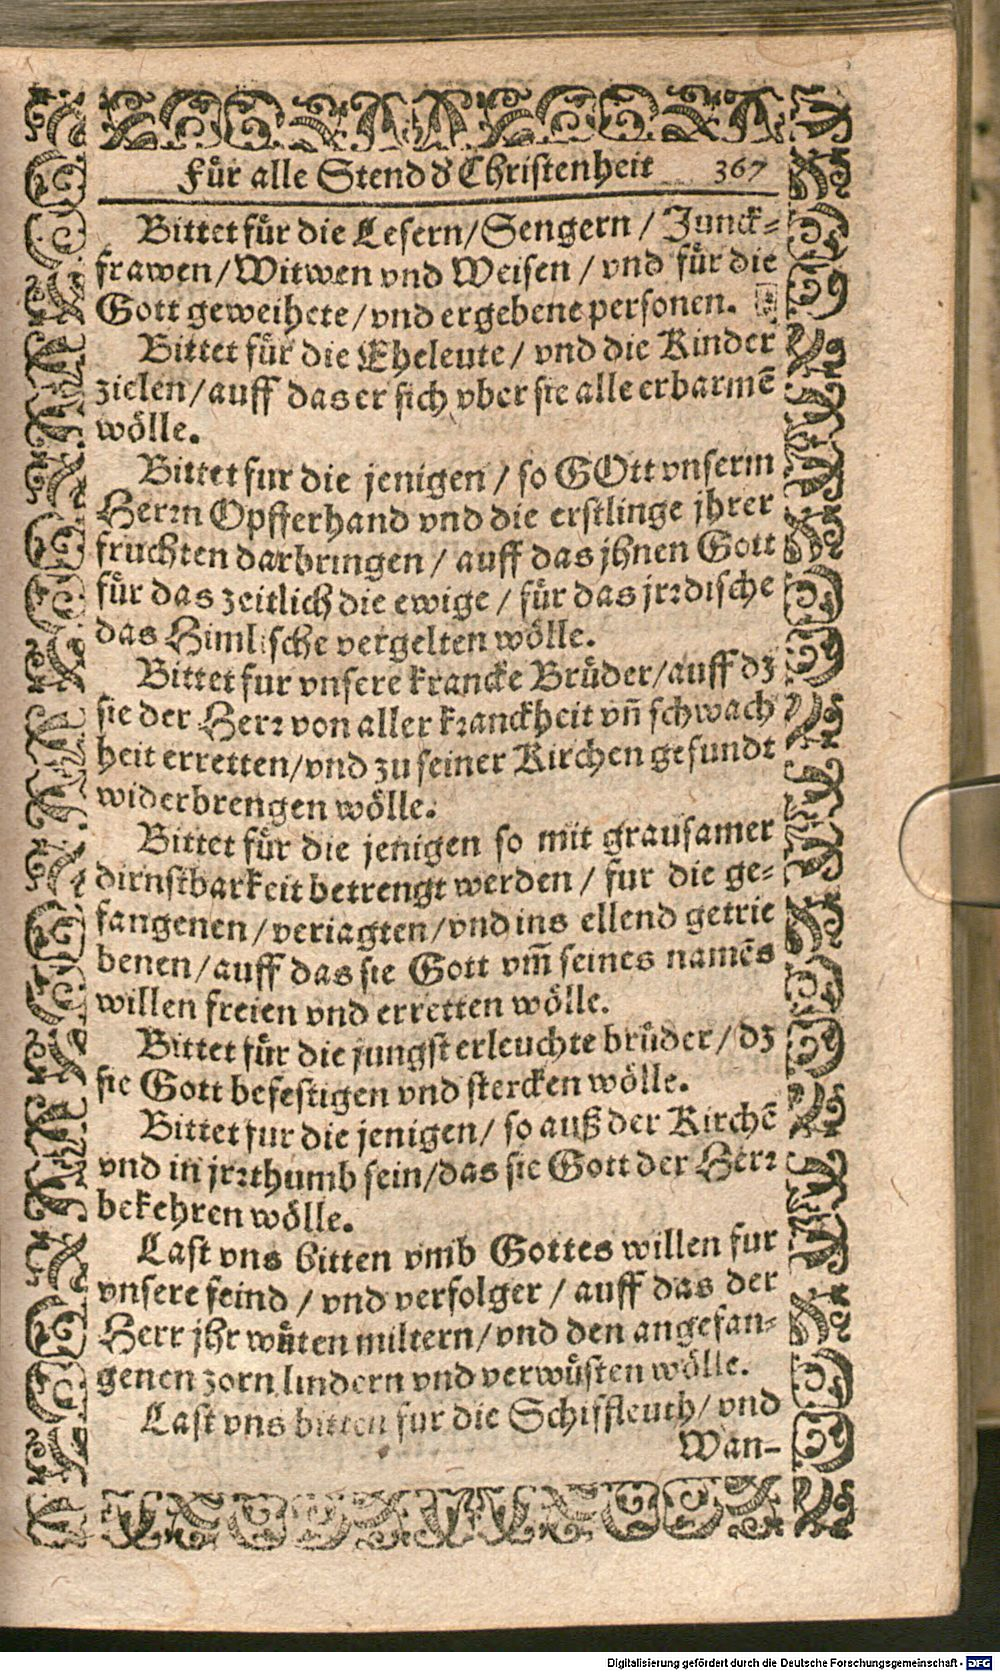 Für alle Stend d᷑ Christenheit 367
Bittet für die Lesern/Sengern / Junck-
frawen/Witwen vnd Weisen / vnd für die
Gott geweihete/vnd ergebene personen.
Bittet für die Eheleute / vnd die Kinder
zielen/auff das er sich vber sie alle erbarmē
wölle.
Bittet fur die jenigen / so GOtt vnserm
Herrn Opfferhand vnd die erstlinge jhrer
fruchten darbringen / auff das jhnen Gott
für das zeitlich die ewige / für das jrrdische
das Himlische vergelten wölle.
Bittet fur vnsere krancke Brüder/auff dz
sie der Herr von aller kranckheit vn̄ schwach
heit erretten/vnd zu seiner Kirchen gesundt
widerbrengen wölle.
Bittet für die jenigen so mit grausamer
dirnstbarkeit betrengt werden / fur die ge-
fangenen/veriagten/vnd ins ellend getrie
benen/auff das sie Gott vm̄ seines namēs
willen freien vnd erretten wölle.
Bittet für die jungst erleuchte brüder/dz
sie Gott befestigen vnd stercken wölle.
Bittet fur die jenigen/ so auß der Kirchē
vnd in jrrthumb sein/das sie Gott der Herr
bekehren wölle.
Last vns bitten vmb Gottes willen fur
vnsere feind / vnd verfolger / auff das der
Herr jhr wüten miltern/vnd den angefan-
genen zorn lindern vnd verwüsten wölle.
Last vns bitten fur die Schiffleuth/ vnd
Wan-
Digitalisierung gefördert durch die Deutsche Forschungsgemeinschaft - DFG